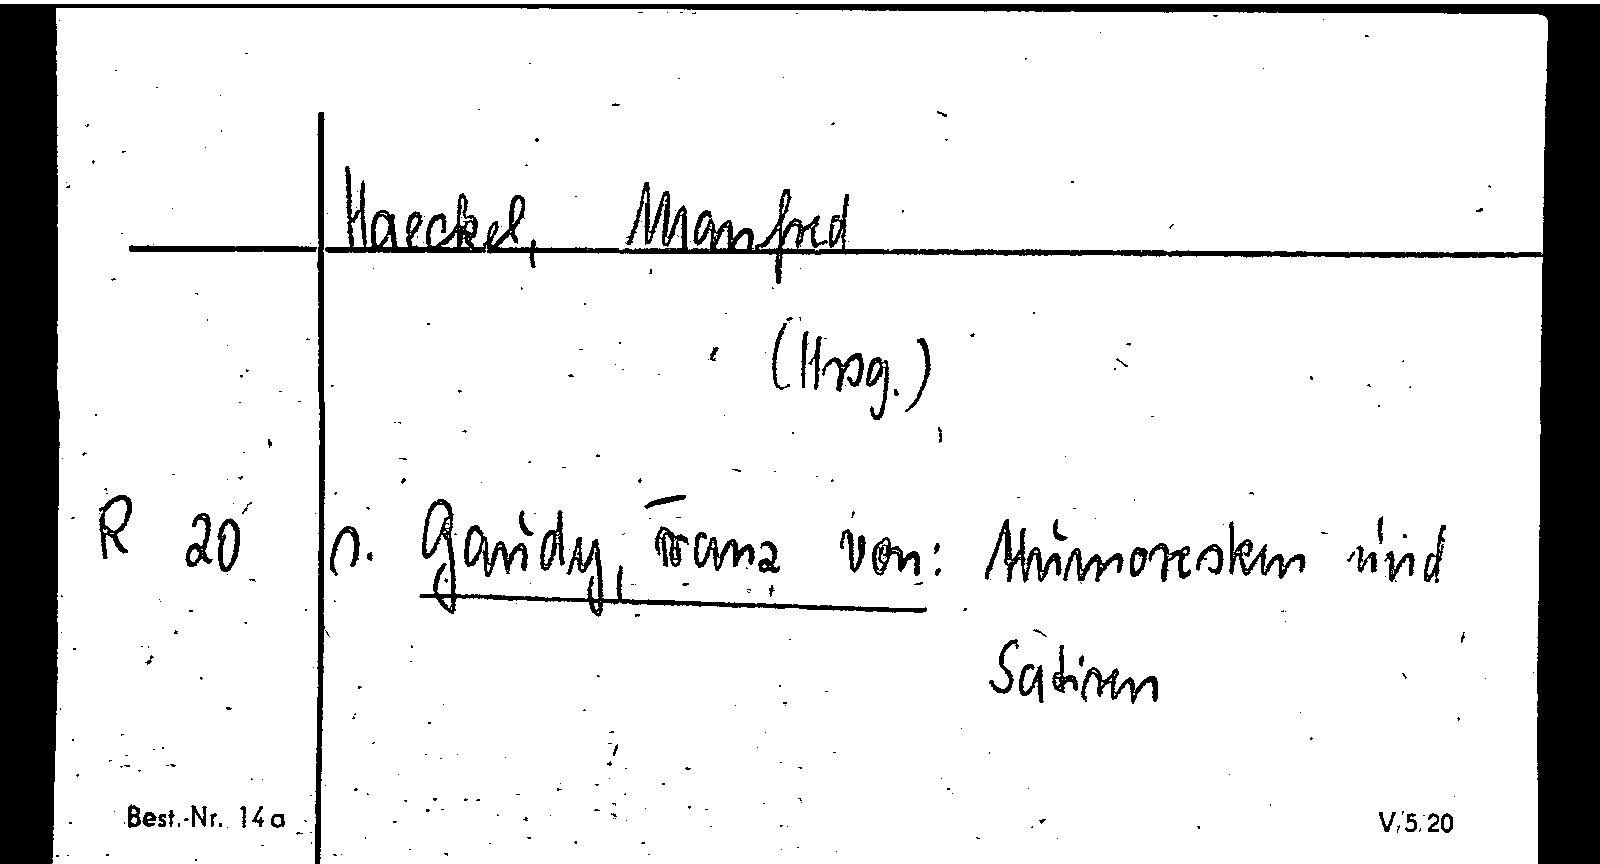 Haeckel, Manfred
(Hrsg.)
R 20 s. Gaudy, Franz von: Humoresken und
Satiren
Best.-Nr. 14a V/5/20